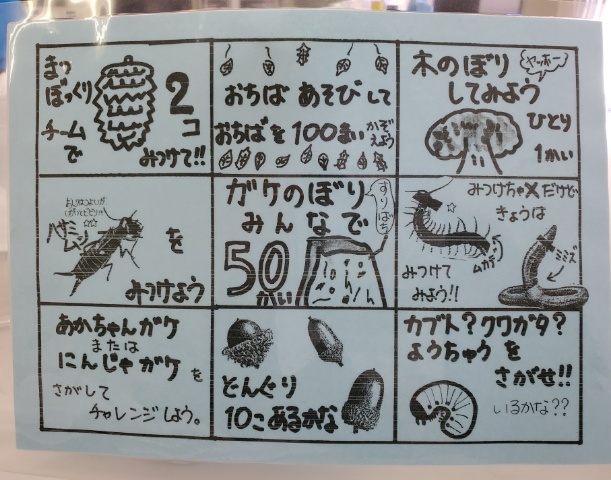 まつ
ぼっくり
2
コ
チーム
で
みつけて!!
おちば あそびして
おちばを 100まい かぞ
えよう
木のぼり
ヤッホー
してみよう
ひとり
1かい
ハサミ
ムシ
を
みつけよう
ガケのぼり
すりばち
みんなで
50
かい
みつけちゃ✕だけど
きょうは
ムカデ
ミミズ
みつけて
みよう!!
あかちゃんガケ
または
にんじゃガケ を
さがして
チャレンジしよう。
どんぐり
10こあるかな
カブト?クワガタ?
ようちゅう を
さがせ!!
いるかな??